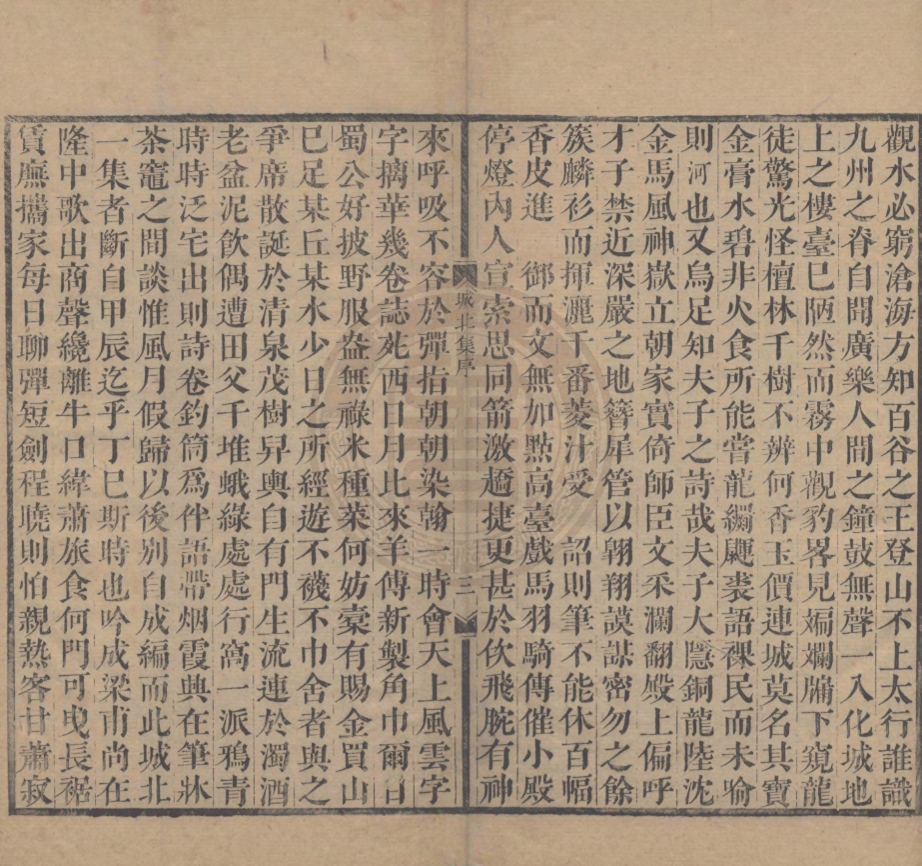 觀水必窮滄海方知百谷之王登山不上太行誰識
九州之脊自聞廣樂人間之鐘鼓無聲一入化城地
上之樓臺已陋然而霧中觀豹畧見斒斕牖下窺龍
徒驚光怪檀林千樹不辨何香玉價連城莫名其寶
金膏水碧非火食所能嘗龍繝麗裘語裸民而未喻
則河也又烏足知夫子之詩哉夫子大隱銅龍陸沈
金馬風神嶽立朝家實倚師臣文采瀾翻殿上偏呼
才子禁近深嚴之地簪犀管以翱翔謨謀密勿之餘
簇麟衫而揮灑千番菱汁受　詔則筆不能休百幅
香皮進　御而文無加點高臺戲馬羽騎傳催小殿
停燈內人宣索思同箭激趫捷更甚於佽飛腕有神
城北集序　三
來呼吸不容於彈指朝朝染翰一時會天上風雲字
字摛華幾卷誌苑西日月比來羊傅新製角巾爾日
蜀公好披野服盎無祿米種菜何妨橐有賜金買山
已足某丘某水少日之所經遊不襪不巾舍者與之
爭席散誕於清泉茂樹舁輿自有門生流連於濁酒
老盆泥飲偶遭田父千堆蛾綠處處行窩一派鴉青
時時泛宅出則詩卷釣筒爲伴語帶烟霞興在筆牀
茶竈之間談惟風月假歸以後別自成編而此城北
一集者斷自甲辰迄乎丁巳斯時也吟成梁甫尚在
隆中歌出商聲纔離牛口緯蕭旅食何門可曳長裾
賃廡攜家每日聊彈短劍程曉則怕親熱客甘蕭寂